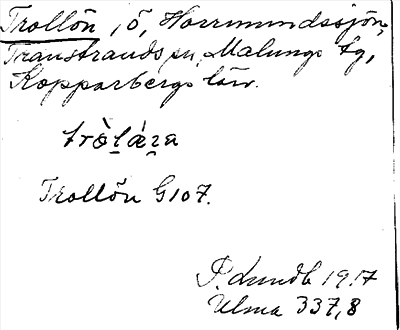 Trollön, ö, Horrmundssjön,
Transtrands sn, Malungs tg,
Kopparbergs län.
Trollön G107.
P. Lundb 1917
Ulma 337,8